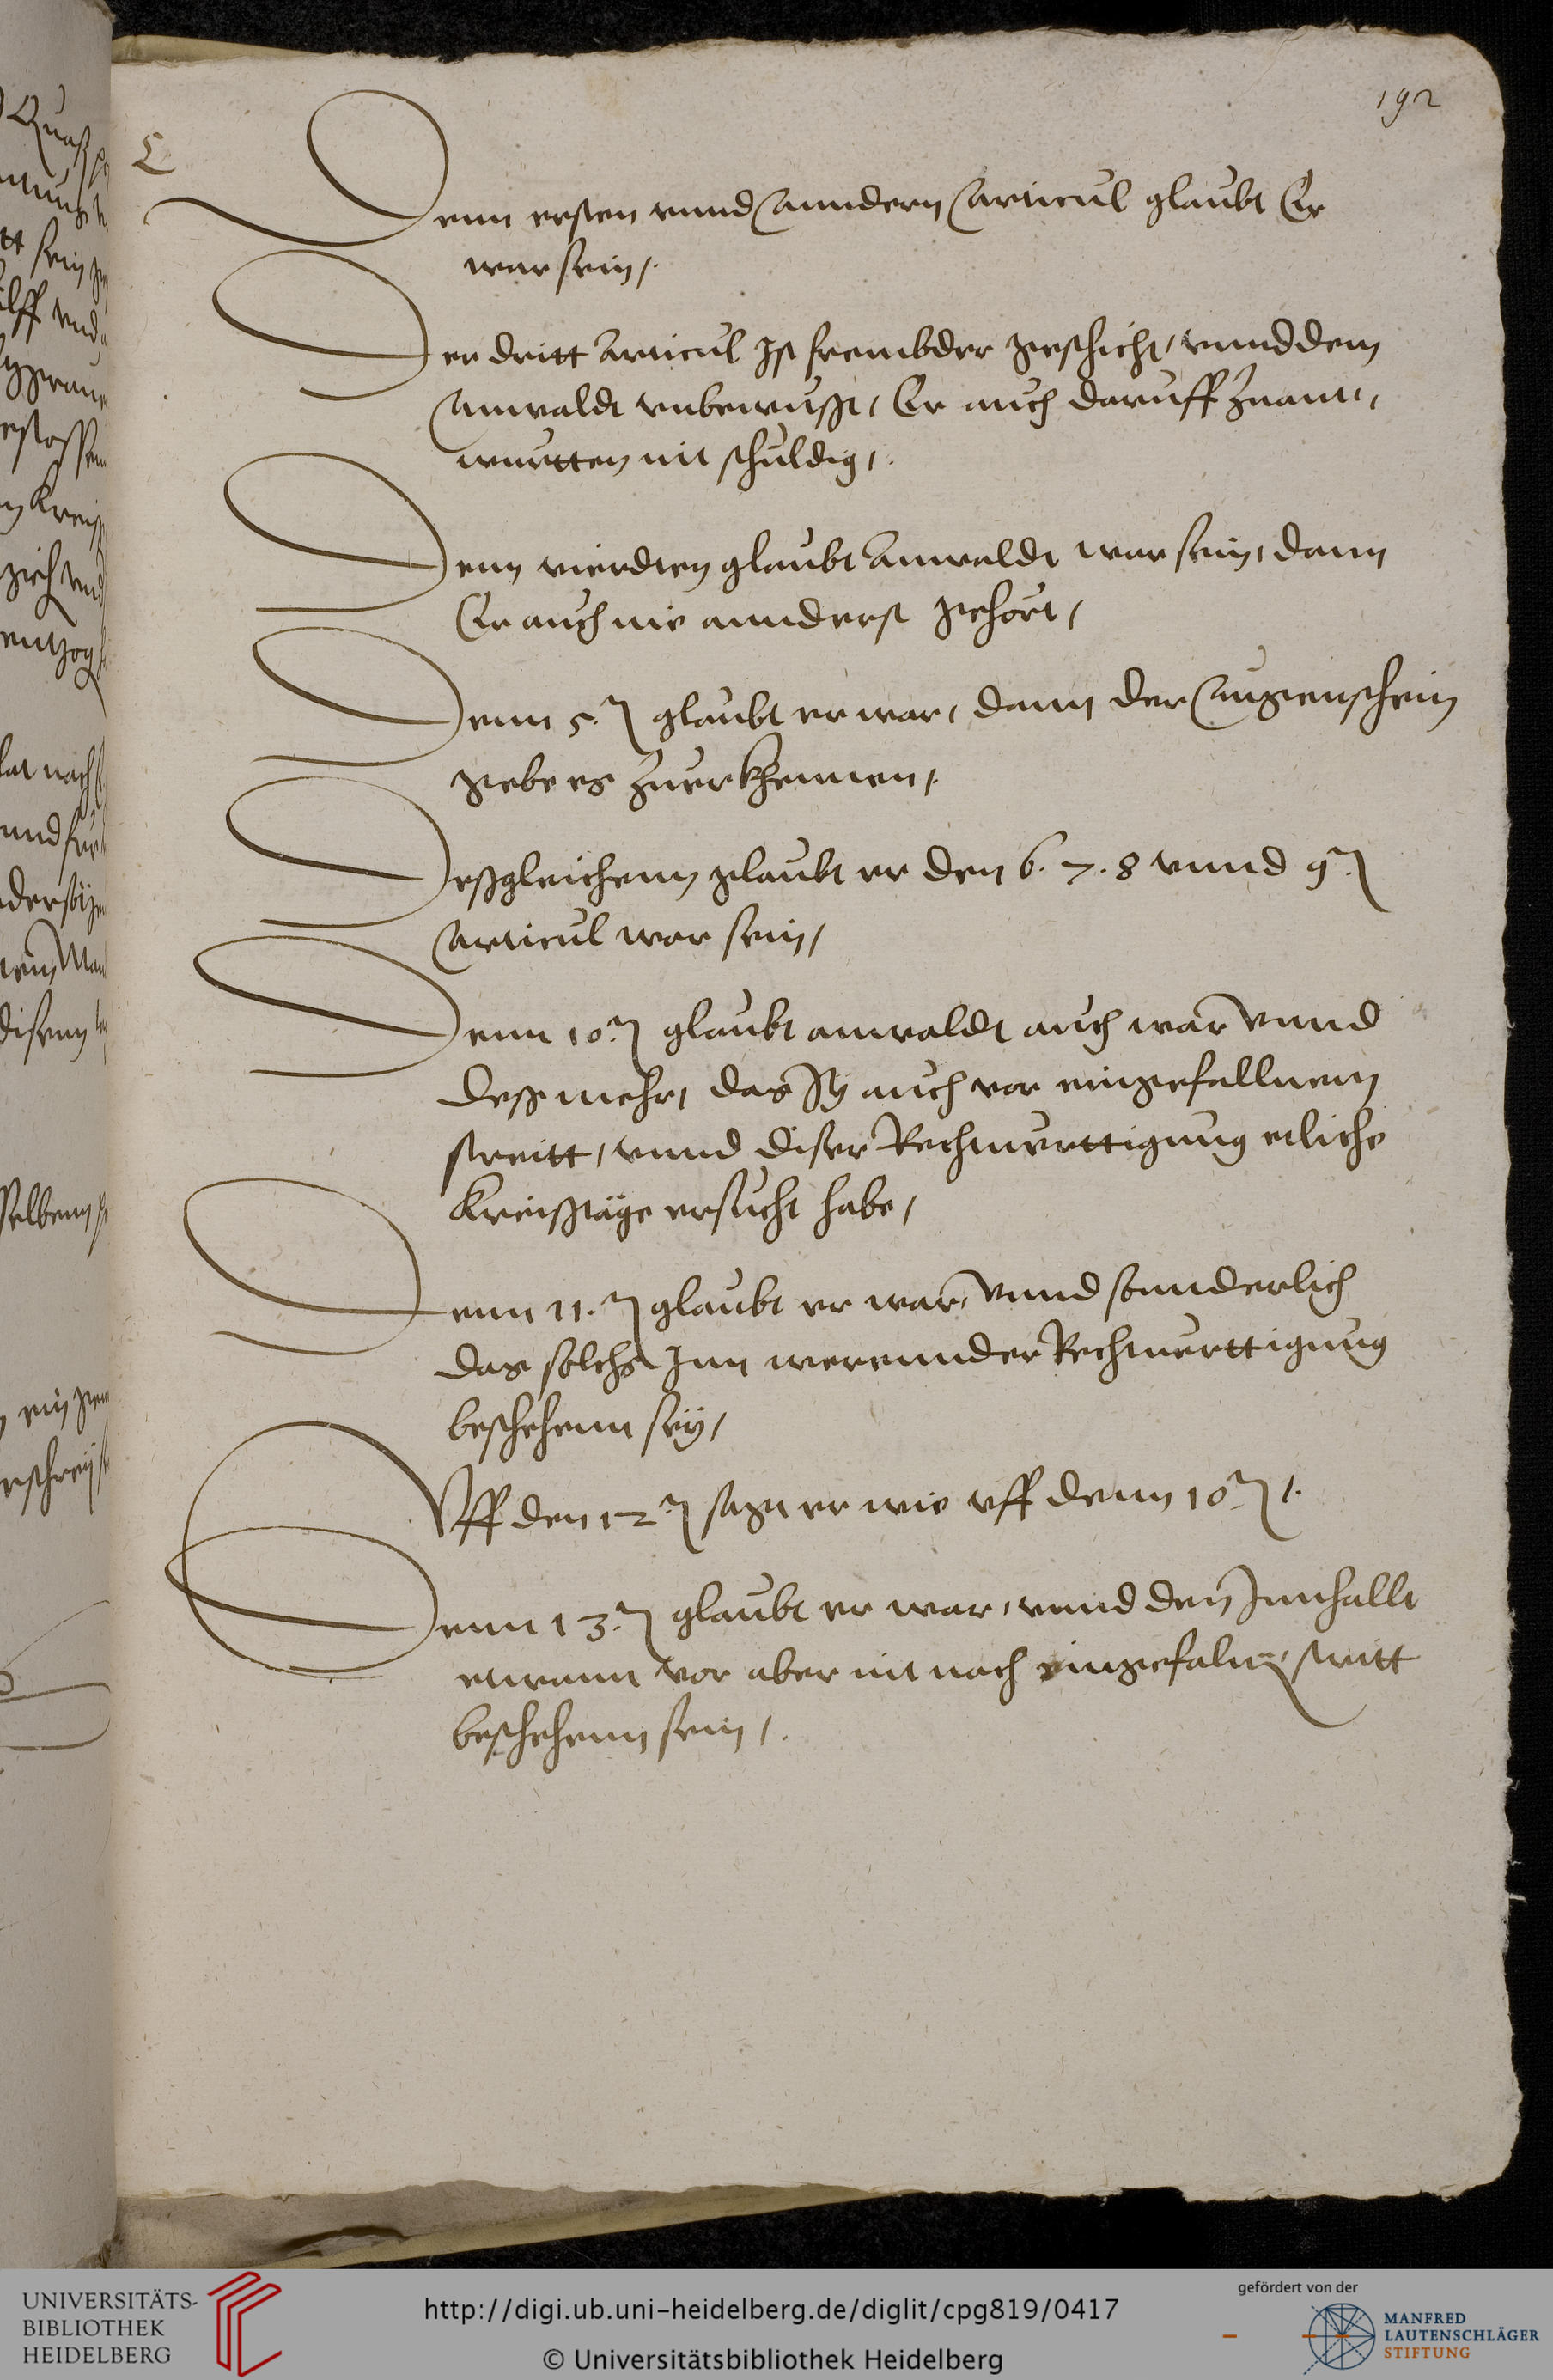 192
Denn ersten vnnd Anndern Articul glaubt Er
war sein /.
Der dritt Articul Ist frembder geschicht, vnnd dem
Anwaldt vnbewusst, Er auch daruff Zuant,,
wurtten nit schuldig,.
Denn vierdten glaubt Anwaldt war sein, dann
Er auch nie annderst gehört,
Denn 5. glaubt er war, dann der Augenschein
gebe es Zuerkhennen,.
Deßgleichenn glaubt er den 6. 7. 8 vnnd 9.
Articul war sein,
Denn 10. glaubt anwaldt auch war Vnnd
deß mehr, das auch vor eingefallnem
streitt, vnnd diser Rechtuerttigung etliche
Kreißtäge ersucht habe,
Denn 11. glaubt er war, Vnnd sonnderlich
das solchs Inn werennder Rechtuerttigung
beschehenn seÿ,
Vff den 12. sagt er wie vff denn 10. /.
Denn 13. glaubt er war, vnnd den Innhallt
etwann vor aber nit nach eingefaln, stritt
beschehenn sein,.
UNIVERSITÄTS-
BIBLIOTHEK
HEIDELBERG
http://digi.ub.uni-heidelberg.de/diglit/cpg819/0417
© Universitätsbibliothek Heidelberg
gefördert von der
MANFRED
LAUTENSCHLÄGER
STIFTUNG